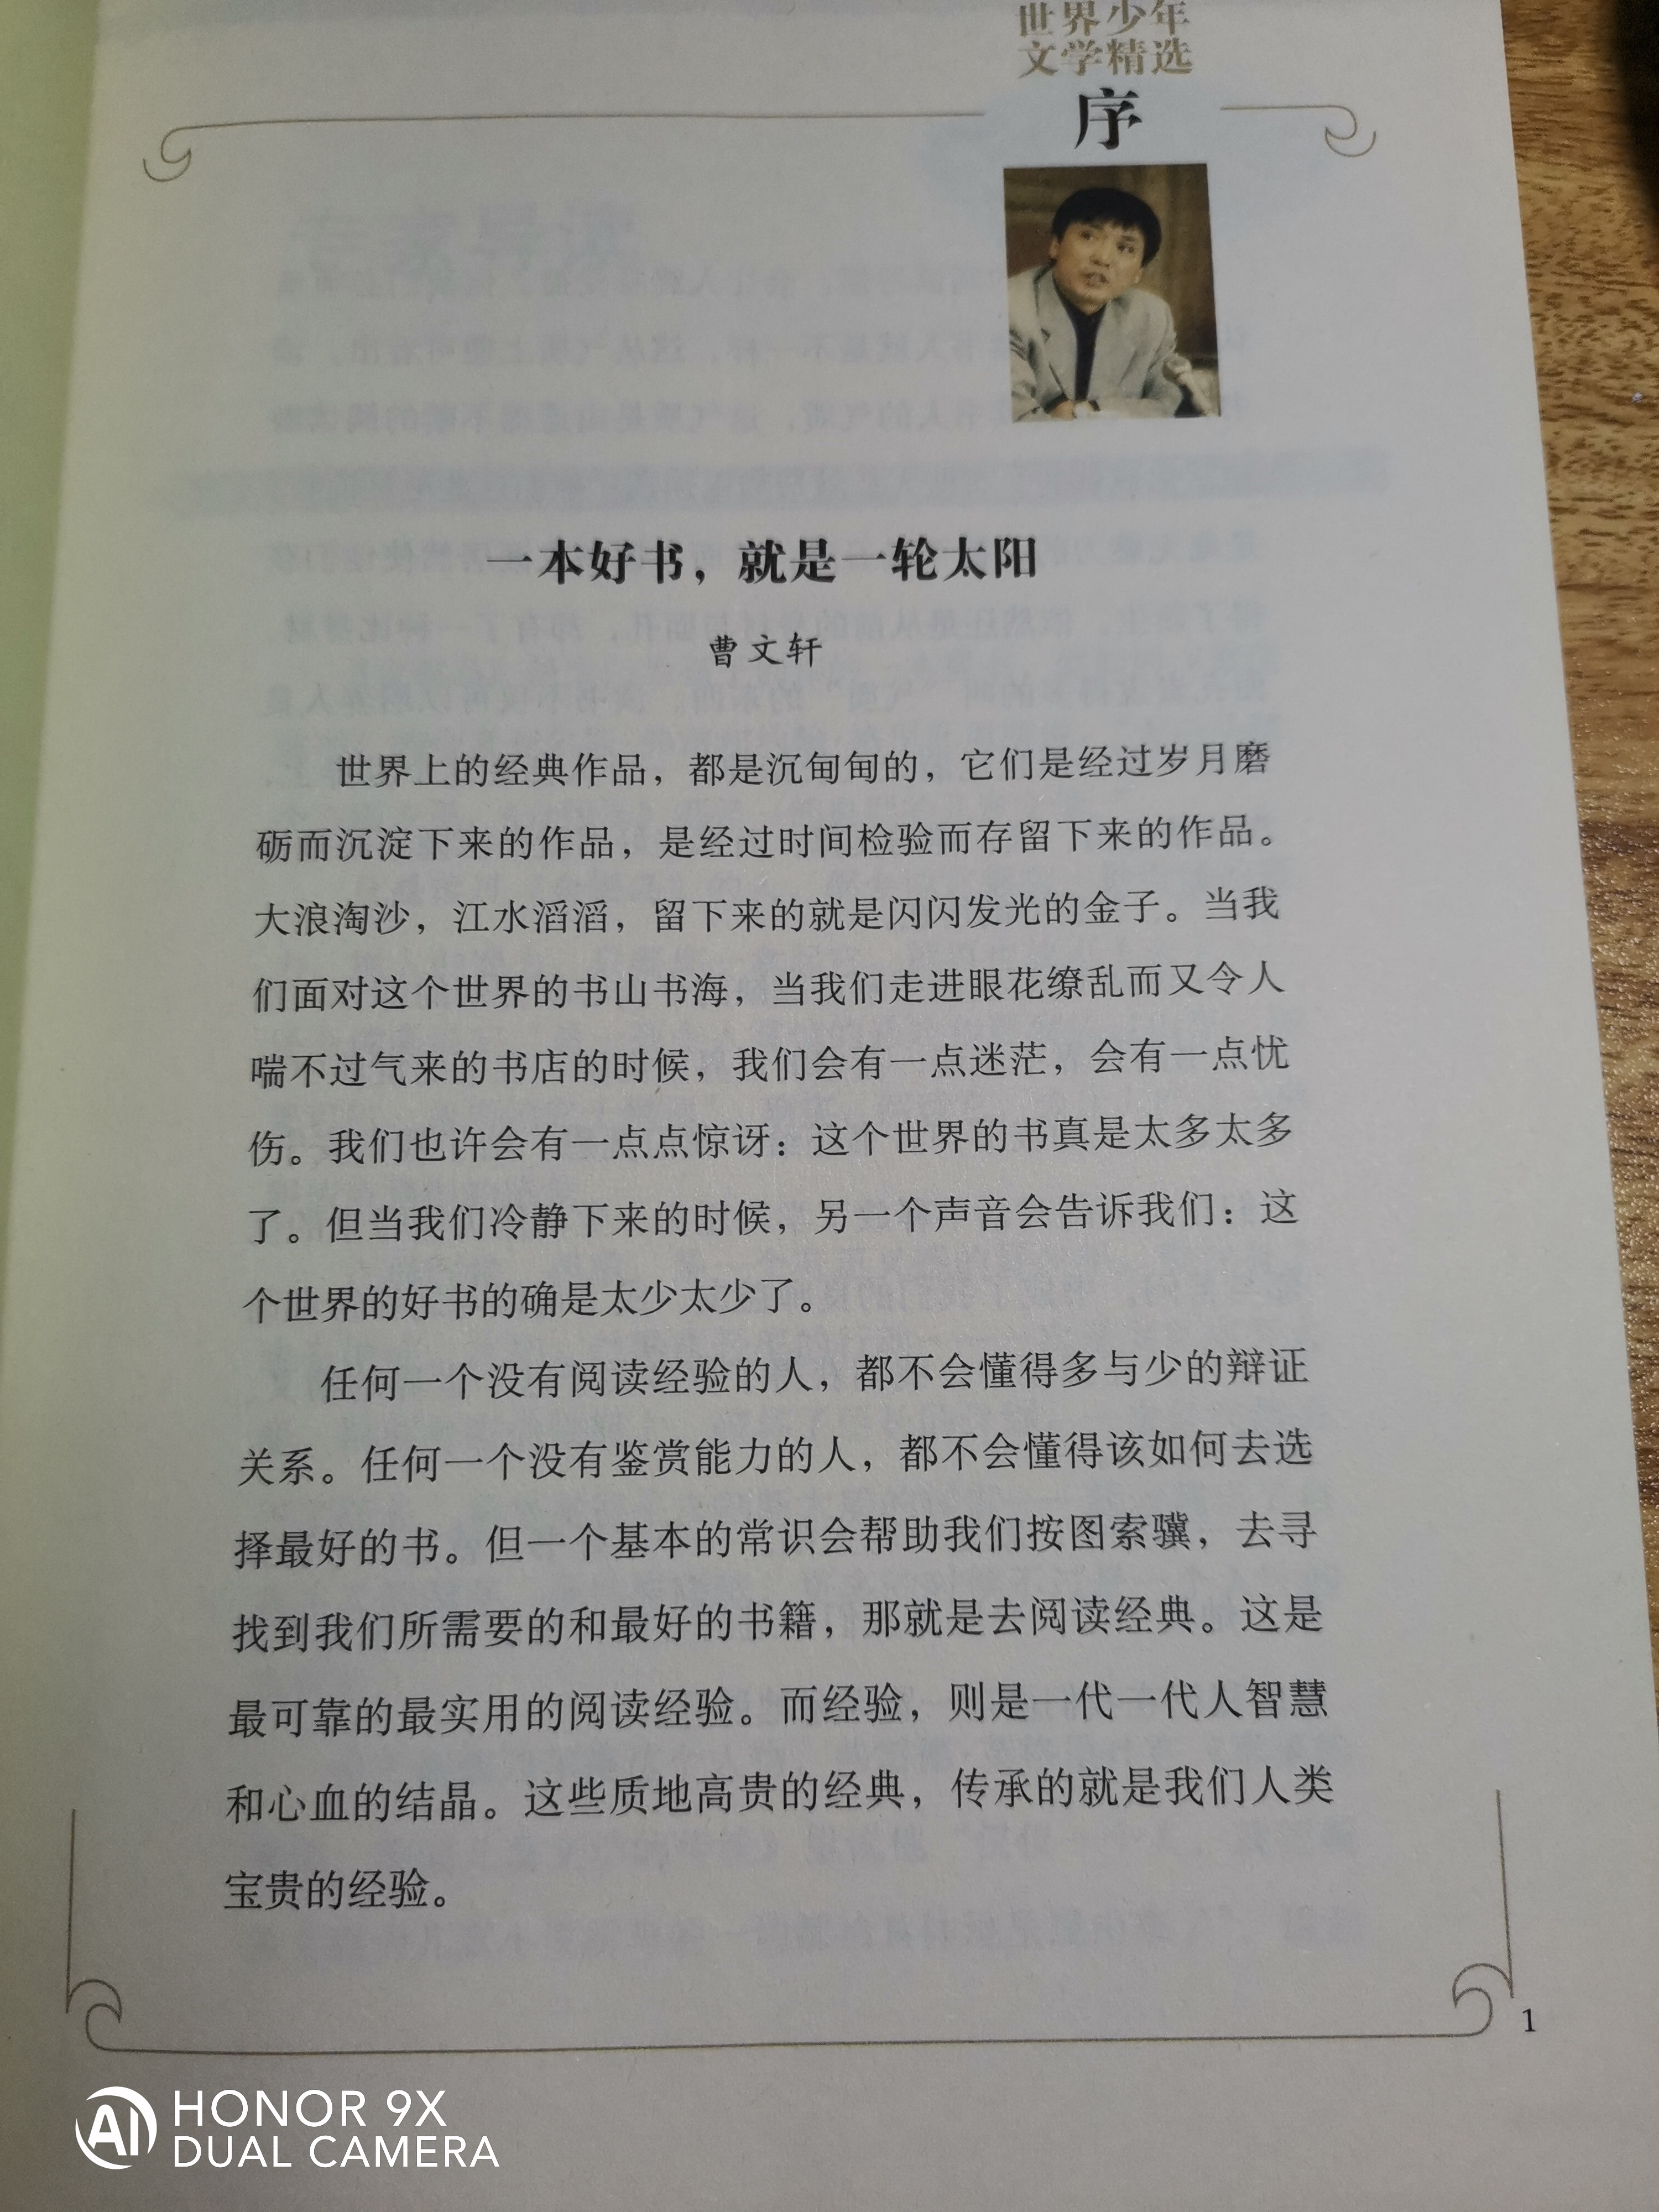 世界少年
文学精选
序
一本好书，就是一轮太阳
曹文轩
世界上的经典作品，都是沉甸甸的，它们是经过岁月磨
砺而沉淀下来的作品，是经过时间检验而存留下来的作品。
大浪淘沙，江水滔滔，留下来的就是闪闪发光的金子。当我
们面对这个世界的书山书海，当我们走进眼花缭乱而又令人
喘不过气来的书店的时候，我们会有一点迷茫，会有一点忧
伤。我们也许会有一点点惊讶：这个世界的书真是太多太多
了。但当我们冷静下来的时候，另一个声音会告诉我们：这
个世界的好书的确是太少太少了。
任何一个没有阅读经验的人，都不会懂得多与少的辩证
关系。任何一个没有鉴赏能力的人，都不会懂得该如何去选
择最好的书。但一个基本的常识会帮助我们按图索骥，去寻
找到我们所需要的和最好的书籍，那就是去阅读经典。这是
最可靠的最实用的阅读经验。而经验，则是一代一代人智慧
和心血的结晶。这些质地高贵的经典，传承的就是我们人类
宝贵的经验。
1
AI HONOR 9X
DUAL CAMERA